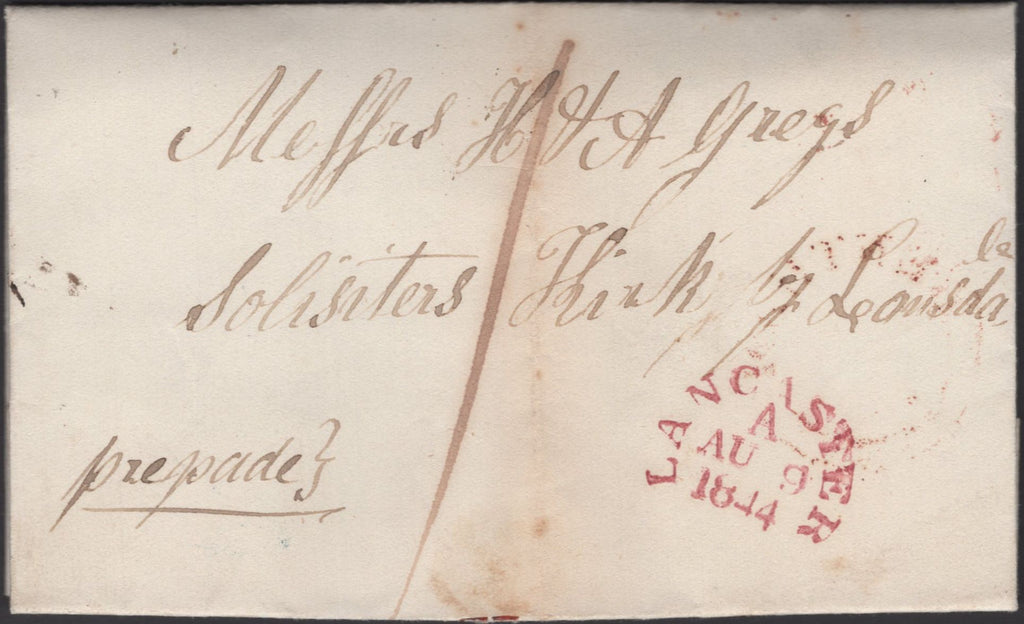 Messrs H & A Gregs
Solisiters Kirk by Lonsdale
prepade
LANCASTER
A
AU 9
1844